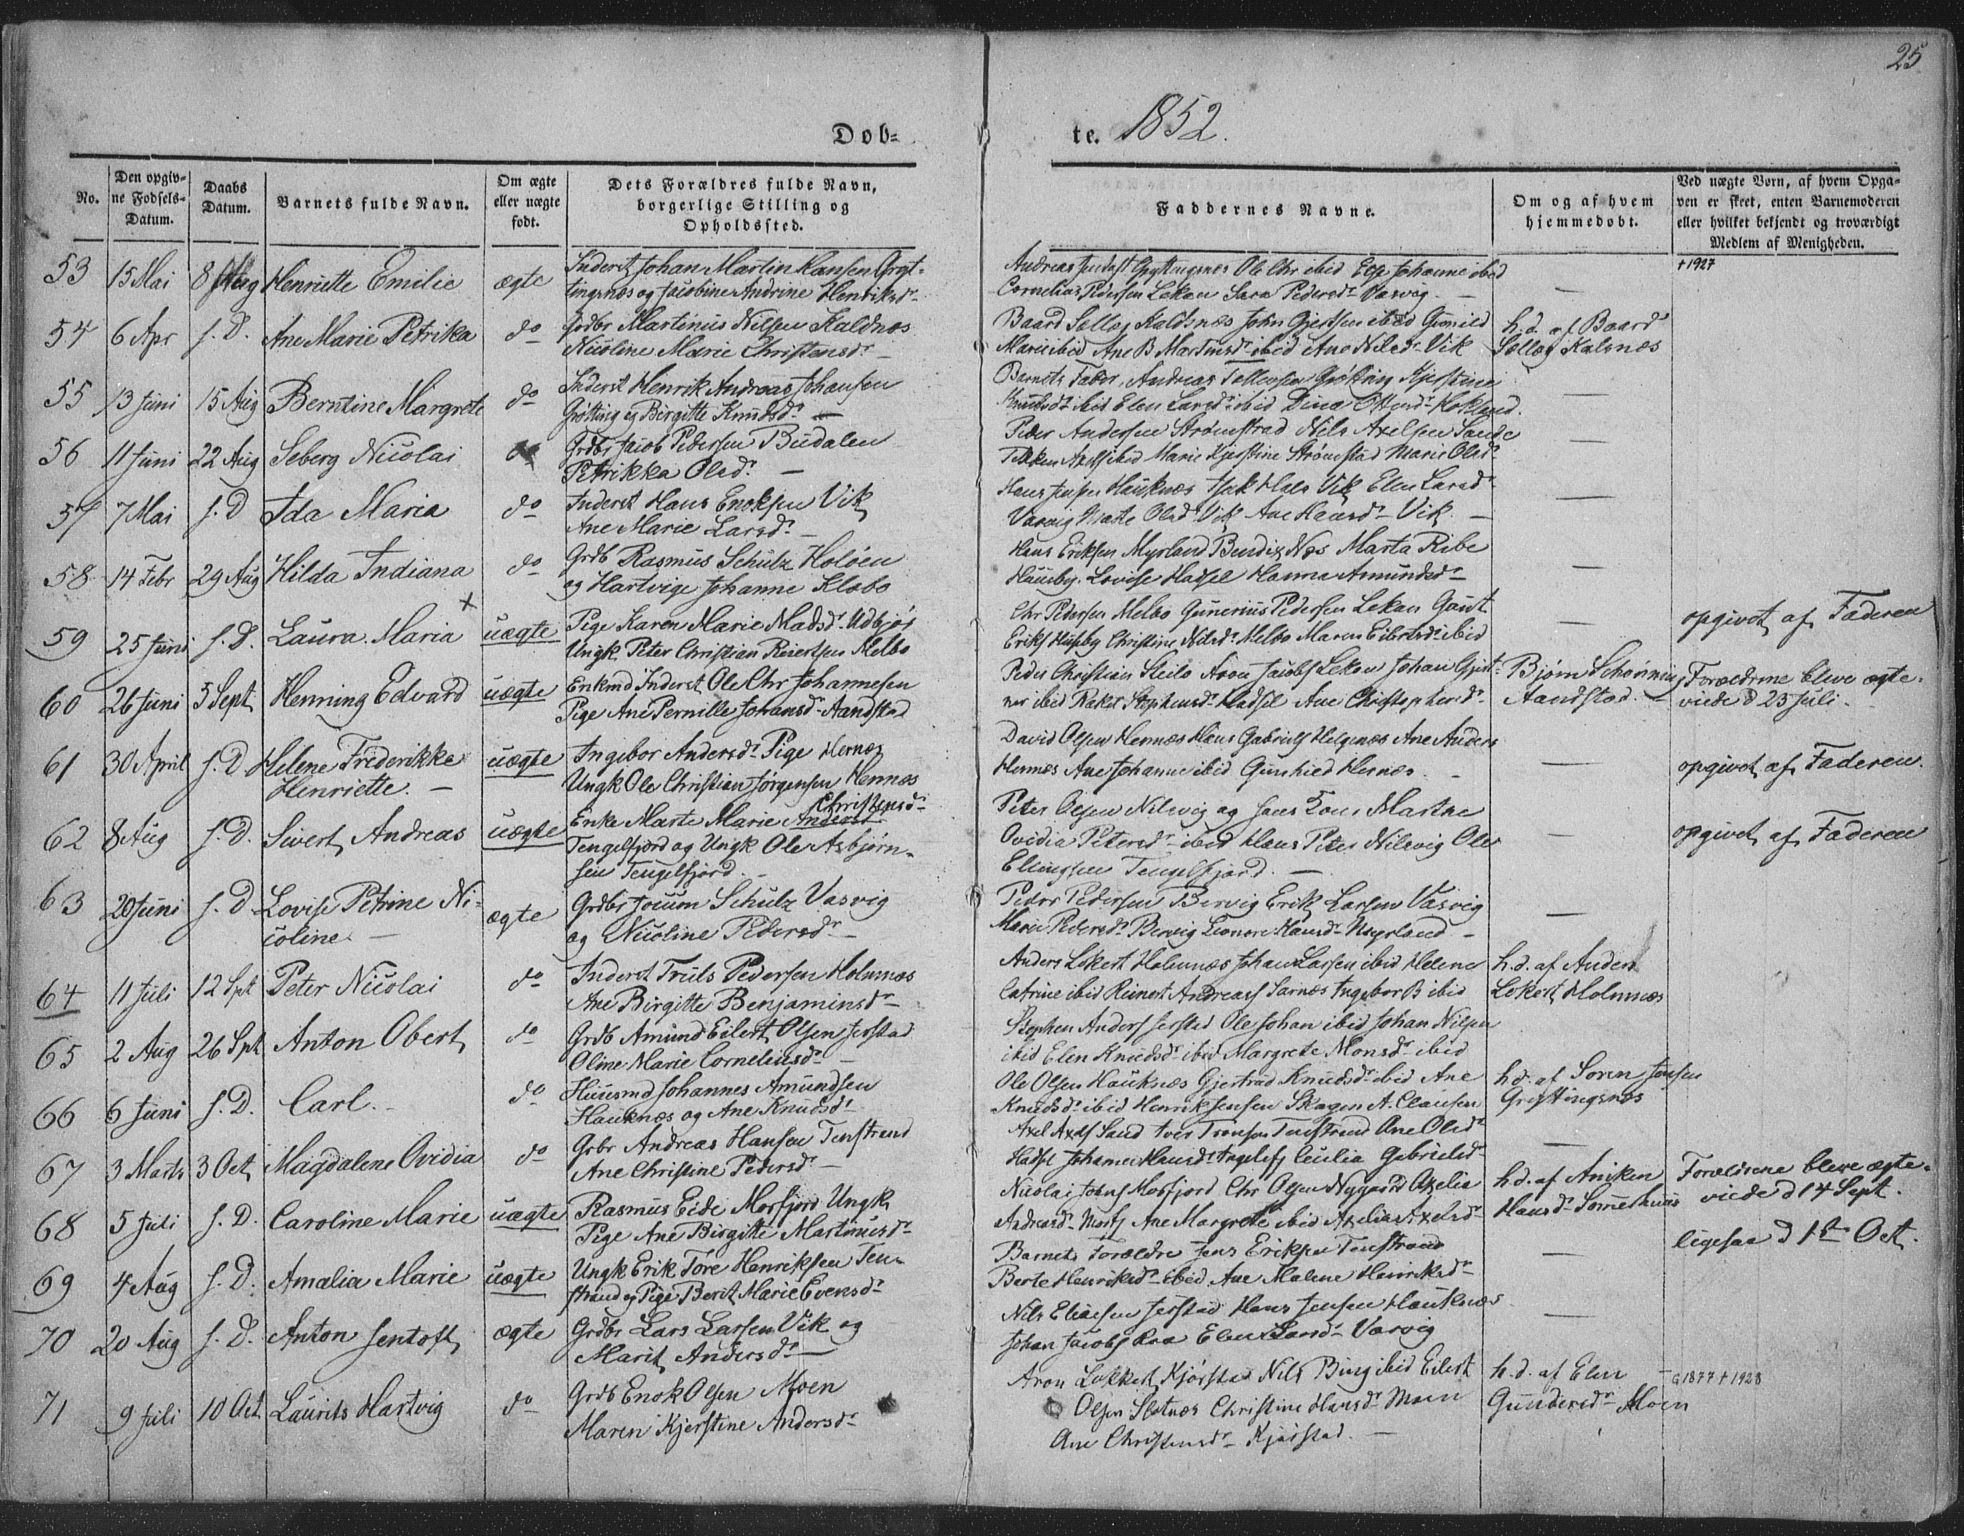 25
Dob-
te. 1852.
No.
Den opgiv-
ne Fødsels-
Datum.
Daabs
Datum.
Barnets fulde Navn.
Om ægte
eller uægte
født.
Dets Forældres fulde Navn,
borgerlige Stilling og
Opholdssted.
Faddernes Navne.
Om og af hvem
hjemmedøbt.
Ved uægte Børn, af hvem Opga-
ven er skeet, enten Barnemoderen
eller hvilket bekjendt og troværdigt
Medlem af Menigheden.
53 15 Mai 8 Aug Henriette Emilie ægte Inderst Johan Martin Hansen Gryt-
tingsnes og Jacobine Andrine Henriksdr
Andreas Gryttingsnes Ole Chr ibid Else Johanne ibid
Cornelius Pedersen Lekan Sara Pedersdr Vasvig —
† 1927
54 6 Apr s. D. Ane Marie Petrika do Grdbr Martinus Nilsen Kaldnes
Nicoline Marie Christensdr —
Baard Kaldsnæs John Gjertsen ibid Gunild
Marie ibid Ane B Martinsdr ibid Ane Nilsdr Vik
h. d. af Baard
Kalsnæs
55 13 Juni 15 Aug Berntine Margrete do Inderst Henrik Andreas Johansen
Grøtting og Birgitte Knudsdr —
Barnets Fader, Andreas Tellevsen Grøtting Kjerstine
Knudsdr ibid Elen Larsdr ibid Dina Hokland.
56 11 Juni 22 Aug Seberg Nicolai do Grdbr Jacob Pedersen Budalen
Petrikka Olsdr. —
Peder Andersen Strømstad Nils Axelsen Sande
ibid Marie Kjerstine Strømstad Marie Olsdr
57 7 Mai s. D Ida Maria do Inderst Hans Enoksen Vik
Ane Marie Larsdr. —
Hans Jensen Hauknæs Vik Elen Larsdr
Vasvig Olsdr Vik Ane Hansdr Vik. —
58 14 Febr 29 Aug Hilda Indiana do Grdb Rasmus Schulz Holøen
og Hartvige Johanne Klobo
Hans Eriksen Myrland Bendix Næs Marta Ribe
Lovise Hadsel Hanna Amundsdr
59 25 Juni s. D. Laura Maria × uægte Pige Karen Marie Madsdr.
Ungk Peter Christian Reiertsen Melbo
Chr Pedersen Melbo Gunerius Pedersen Lekan Gaut
Eriks Christine Nilsdr Melbo Maren ibid
opgivet af Faderen
60 26 Juni 5 Sept Henning Edvard uægte Enkmd Inderst Ole Chr Johannesen
Pige Ane Pernille Johansdr Aandstad
Peder Christian Steilo Aron Jacobs Lekan Johan
ibid Stephensdr Hadsel Ane Christophersdr
Bjørn
Aandstad. —
Forældrene bleve ægte-
viede d 23 Juli.
61 30 April s. D Helene Friderikke
Henriette. —
uægte Ingebor Andersdr Pige Hernes
Ungk Ole Christian Jørgensen Hennæs
David Olsen Hennæs Hans Gabriels Helgenæs Ane Anders
Hennæs Ane Johanne ibid Hernæs. —
opgivet af Faderen.
62 8 Aug s. D. Sivert Andreas uægte Enke Marte Marie Andersdr Christensdr
Tengelfjord og Ungk Ole Asbjørn-
sen Tengelfjord.
Peter Olsen Nilsvig og Hans Kone Martha
Ovidia Petersdr ibid Hans Peter Nilsvig Ole
Ellingsen Tengelfjord. —
opgivet af Faderen
63 20 Juni s. D Lovise Petrine Ni-
coline —
ægte Grdbr Schulz Vasvig
og Nicoline Pedersdr —
Peder Pedersen Bervig Erik Larsen Vasvig
Maren Pedersdr Bervig Leonore Hansdr Myrland —
64 11 Juli 12 Spt Peter Nicolai do Inderst Truls Pedersen Holmnæs
Ane Birgitte Benjaminsdr —
Anders Lekert Holmnæs Johan Larsen ibid Helene
Catrine ibid Reinert Andreas Sarnæs Ingebor B ibid
h. d. af Anders
Lekert Holmnæs
65 2 Aug 26 Spt Anton Obert do Grdb Amund Eilert Olsen Jerstad
Oline Marie Corneliusdr —
Stephen Anders Jerstad Ole Johan ibid Johan Nilsen
ibid Elen Knudsdr ibid Margrete Monsdr ibid
66 6 Juni s. D. Carl. — do Huusmd Johannes Amundsen
Hauknæs og Ane Knudsdr
Ole Olsen Hauknæs Gjertrud Knudsdr ibid Ane
Knudsdr ibid Henrik Jensen Skagen A. Clausen
h. d. af Søren Jensen
Gryttingsnæs
67 3 Marts 3 Oct Magdalene Ovidia do Grbr Andreas Hansen Tenstrand
Ane Christine Pedersdr —
Axel Axels Sand Iver Tronsen Tenstrand Ane Olsdr
Hadsel Johanne Hansdr Cecilia Gabrielsdr
68 5 Juli s. D. Caroline Marie uægte Rasmus Eide Morfjord Ungk
Pige Ane Birgitte Martinusdr
Nicolai Johns Morfjord Chr Olsen Nygaard Axelia
Andreasdr Ane Margrete ibid Axelia Axelsdr
h. d. af Aniken
Hansdr
Forældrene bleve ægte-
viede d 14 Sept.
69 4 Aug s. D. Amalia Marie uægte Ungk Erik Tore Henriksen Ten-
strand og Pige Berit Marie Evensdr
Barnets Forældre Jens Eriksen Tenstrand
Berte Henriksdr ibid Ane Malene Henriksdr
ligesaa d 1ste Oct.
70 20 Aug s. D. Anton Jentoft ægte Grdbr Lars Larsen Vik og
Marit Andersdr —
Nils Eliaesen Jerstad Hans Jensen Hauknæs
Johan Jacobs Elen Larsdr Vasvig
71 9 Juli 10 Oct Laurits Hartvig do Grdb Enok Olsen Moen
Maren Kjerstine Andersdr
Aron Lekkert Kjørstad Nils Bing ibid Eilert
Olsen Slotnæs Christine Hansdr Moen
Ane Christensdr Kjørstad. —
h. d. af Elen
Gundersdr Moen
G 1877 † 1928